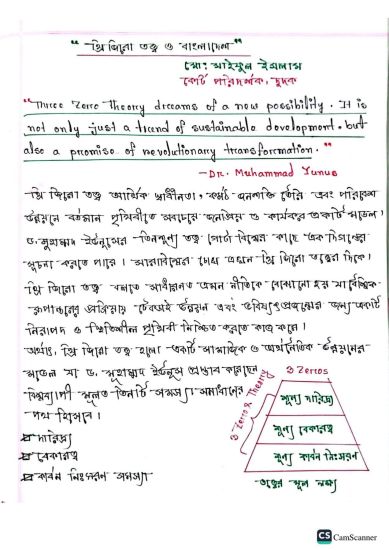 "থ্রি জিরো তত্ত্ব ও বাংলাদেশ"
মো: সাইফুল ইসলাম
কোর্ট পরিদর্শক, দুদক
"Three Zero Theory dreams of a new possibility. It is
not only just a trend of sustainable development. but
also a promise of revolutionary transformation."
–Dr. Muhammad Yunus
থ্রি জিরো তত্ত্ব আর্থিক স্বাধীনতা, কর্মঠ জনশক্তি তৈরি এবং পরিবেশ
উন্নয়নে বর্তমান পৃথিবীতে সবচেয়ে জনপ্রিয় ও কার্যকর একটি মডেল।
ড. মুহাম্মদ ইউনূসের তিনশূন্য তত্ত্ব গোটা বিশ্বের কাছে এক দিগন্তের
সূচনা করতে পারে। সারাবিশ্বের চোখ এখন থ্রি জিরো তত্ত্বের দিকে।
থ্রি জিরো তত্ত্ব বলতে সাধারণত এমন নীতিকে বোঝানো হয় যা বৈশ্বিক
রূপান্তরের প্রক্রিয়ায় টেকসই উন্নয়ন এবং ভবিষ্যৎ প্রজন্মের জন্য একটি
নিরাপদ ও স্থিতিশীল পৃথিবী নিশ্চিত করতে কাজ করে।
অর্থাৎ, থ্রি জিরো তত্ত্ব হলো একটি সামাজিক ও অর্থনৈতিক উন্নয়নের
মডেল যা ড. মুহাম্মদ ইউনূস প্রস্তাব করেছেন
বিশ্বব্যাপী মূলত তিনটি সমস্যা সমাধানের
পথ হিসাবে।
দারিদ্র্য
বেকারত্ব
কার্বন নিঃসরণ সমস্যা
3 Zeros
3 Zero's Theory
শূন্য দারিদ্র্য
শূন্য বেকারত্ব
শূন্য কার্বন নিঃসরণ
তত্ত্বের মূল লক্ষ্য
CS CamScanner